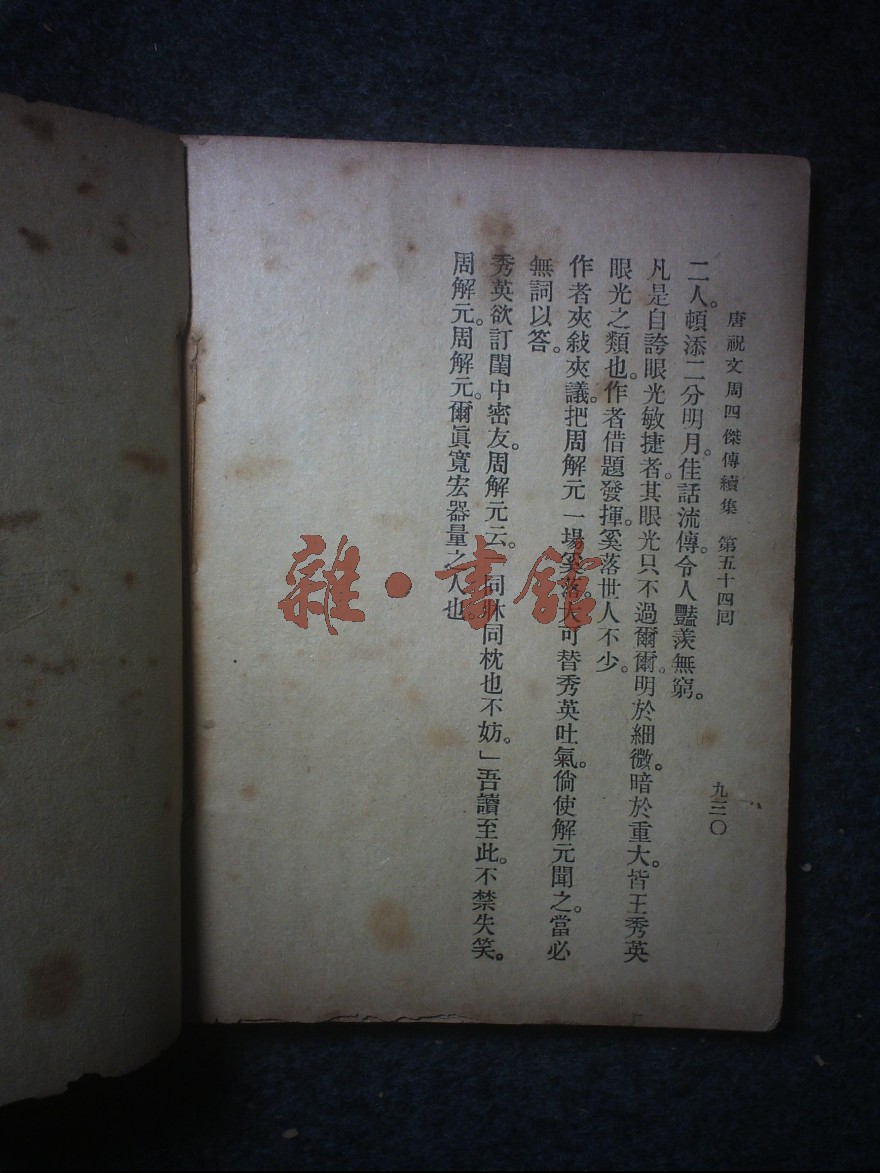 唐祝文周四傑傳續集　第五十四回
九三〇
二人。頓添二分明月。佳話流傳。令人豔羨無窮。
凡是自誇眼光敏捷者。其眼光只不過爾爾。明於細微。暗於重大。皆王秀英
眼光之類也。作者借題發揮。奚落世人不少。
作者夾敍夾議。把周解元一場奚落。大可替秀英吐氣。倘使解元聞之。當必
無詞以答。
秀英欲訂閨中密友。周解元云。同牀同枕也不妨。」吾讀至此。不禁失笑。
周解元。周解元。爾眞寬宏器量之人也。
雜·書館